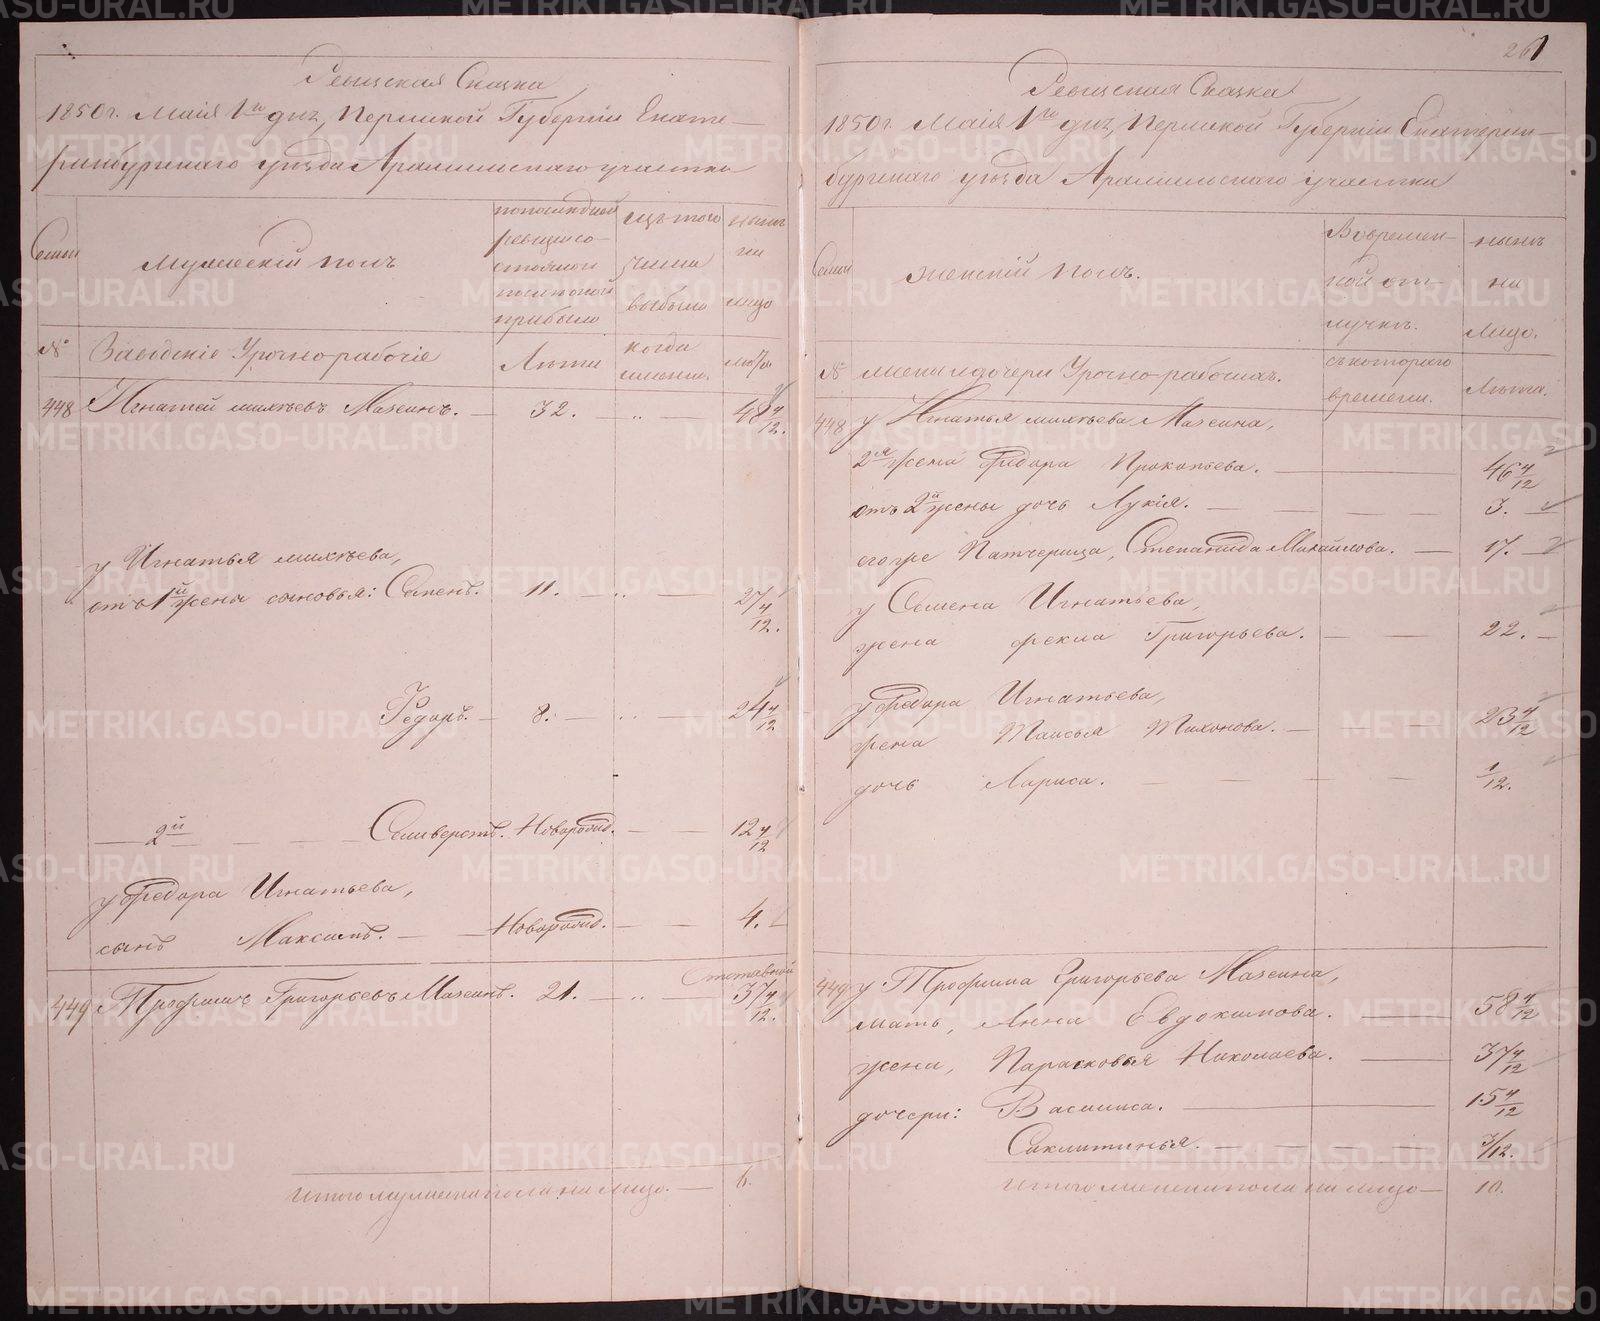 Ревизская Сказка
1850 г. Маія 1го дня, Пермской Губерніи Екате-
ринбургскаго уѣзда Арамильскаго участка
Семьи
Мужескій полъ
по последней
ревизіи со-
стояло и
после оной
прибыло
изъ того
числа
выбыло
ныне
на
лицо
№
Заводскіе Урочно-рабочіе
Лѣта
когда
именно.
лѣта
448 Игнатей Михѣевъ Мазеинъ. — 32. — „ — 48 4/12.
у Игнатья Михѣева,
отъ 1й жены сыновья: Семенъ. 11. — „ — 27 4/12.
Федоръ. — 8. — „ — 24 4/12
— 2й — Селиверстъ. Новорожд. — — 12 4/12
у Федора Игнатьева,
сынъ Максимъ. — Новорожд. — — 4.
449 Трофимъ Григорьевъ Мазеинъ. 21. — „ — 37 4/12.
Отставной
Итого мужеска пола на лицо. — 6.
261
Ревизская Сказка
1850 г. Маія 1го дня, Пермской Губерніи Екатерин-
бургскаго уѣзда Арамильскаго участка
Семьи
женскій полъ.
Во времен-
ной от-
лучкѣ.
нынѣ
на
лицо.
№
жены и дочери Урочно-рабочихъ.
съ котораго
времени.
Лѣта.
448 у Игнатья Михѣева Мазеина,
2я жена Федора Прокопьева. — 46 4/12
отъ 2й жены дочь Лукія. — — — 3. —
его же Патчерица, Степанида Михайлова. — 17. —
у Семена Игнатьева,
жена Фекла Григорьева. — — 22. —
у Федора Игнатьева,
жена Таисья Тихонова. — — — 23 4/12
дочь Лариса. — — — 1/12.
449 у Трофима Григорьева Мазеина,
мать, Анна Евдокимова. — 58 4/12
жена, Парасковья Николаева. — 37 4/12
дочери: Васлиса. — 15 4/12
Сиклитинья. — — — 3/12.
Итого женска пола на лицо — 10.
METRIKI.GASO-URAL.RU